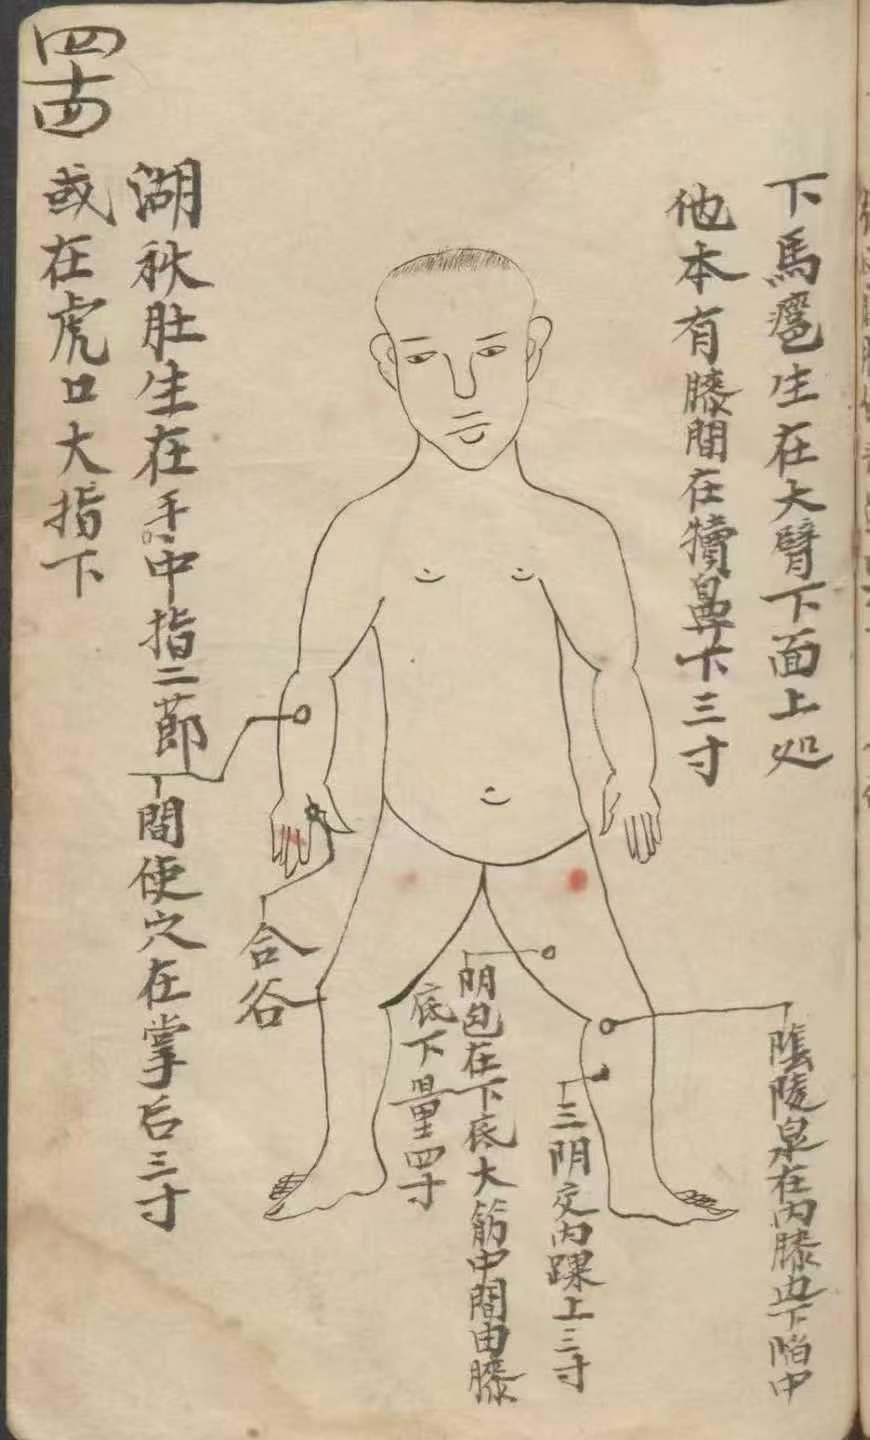 四十四
下馬癰生在大臂下面上处
他本有膝間在犢鼻下三寸
湖秋肚生在手中指二節
或在虎口大指下
間使穴在掌后三寸
合谷
陰陵泉在内膝边下陷中
三阴交内踝上三寸
阴包在下底大筋中間由膝
底下量四寸